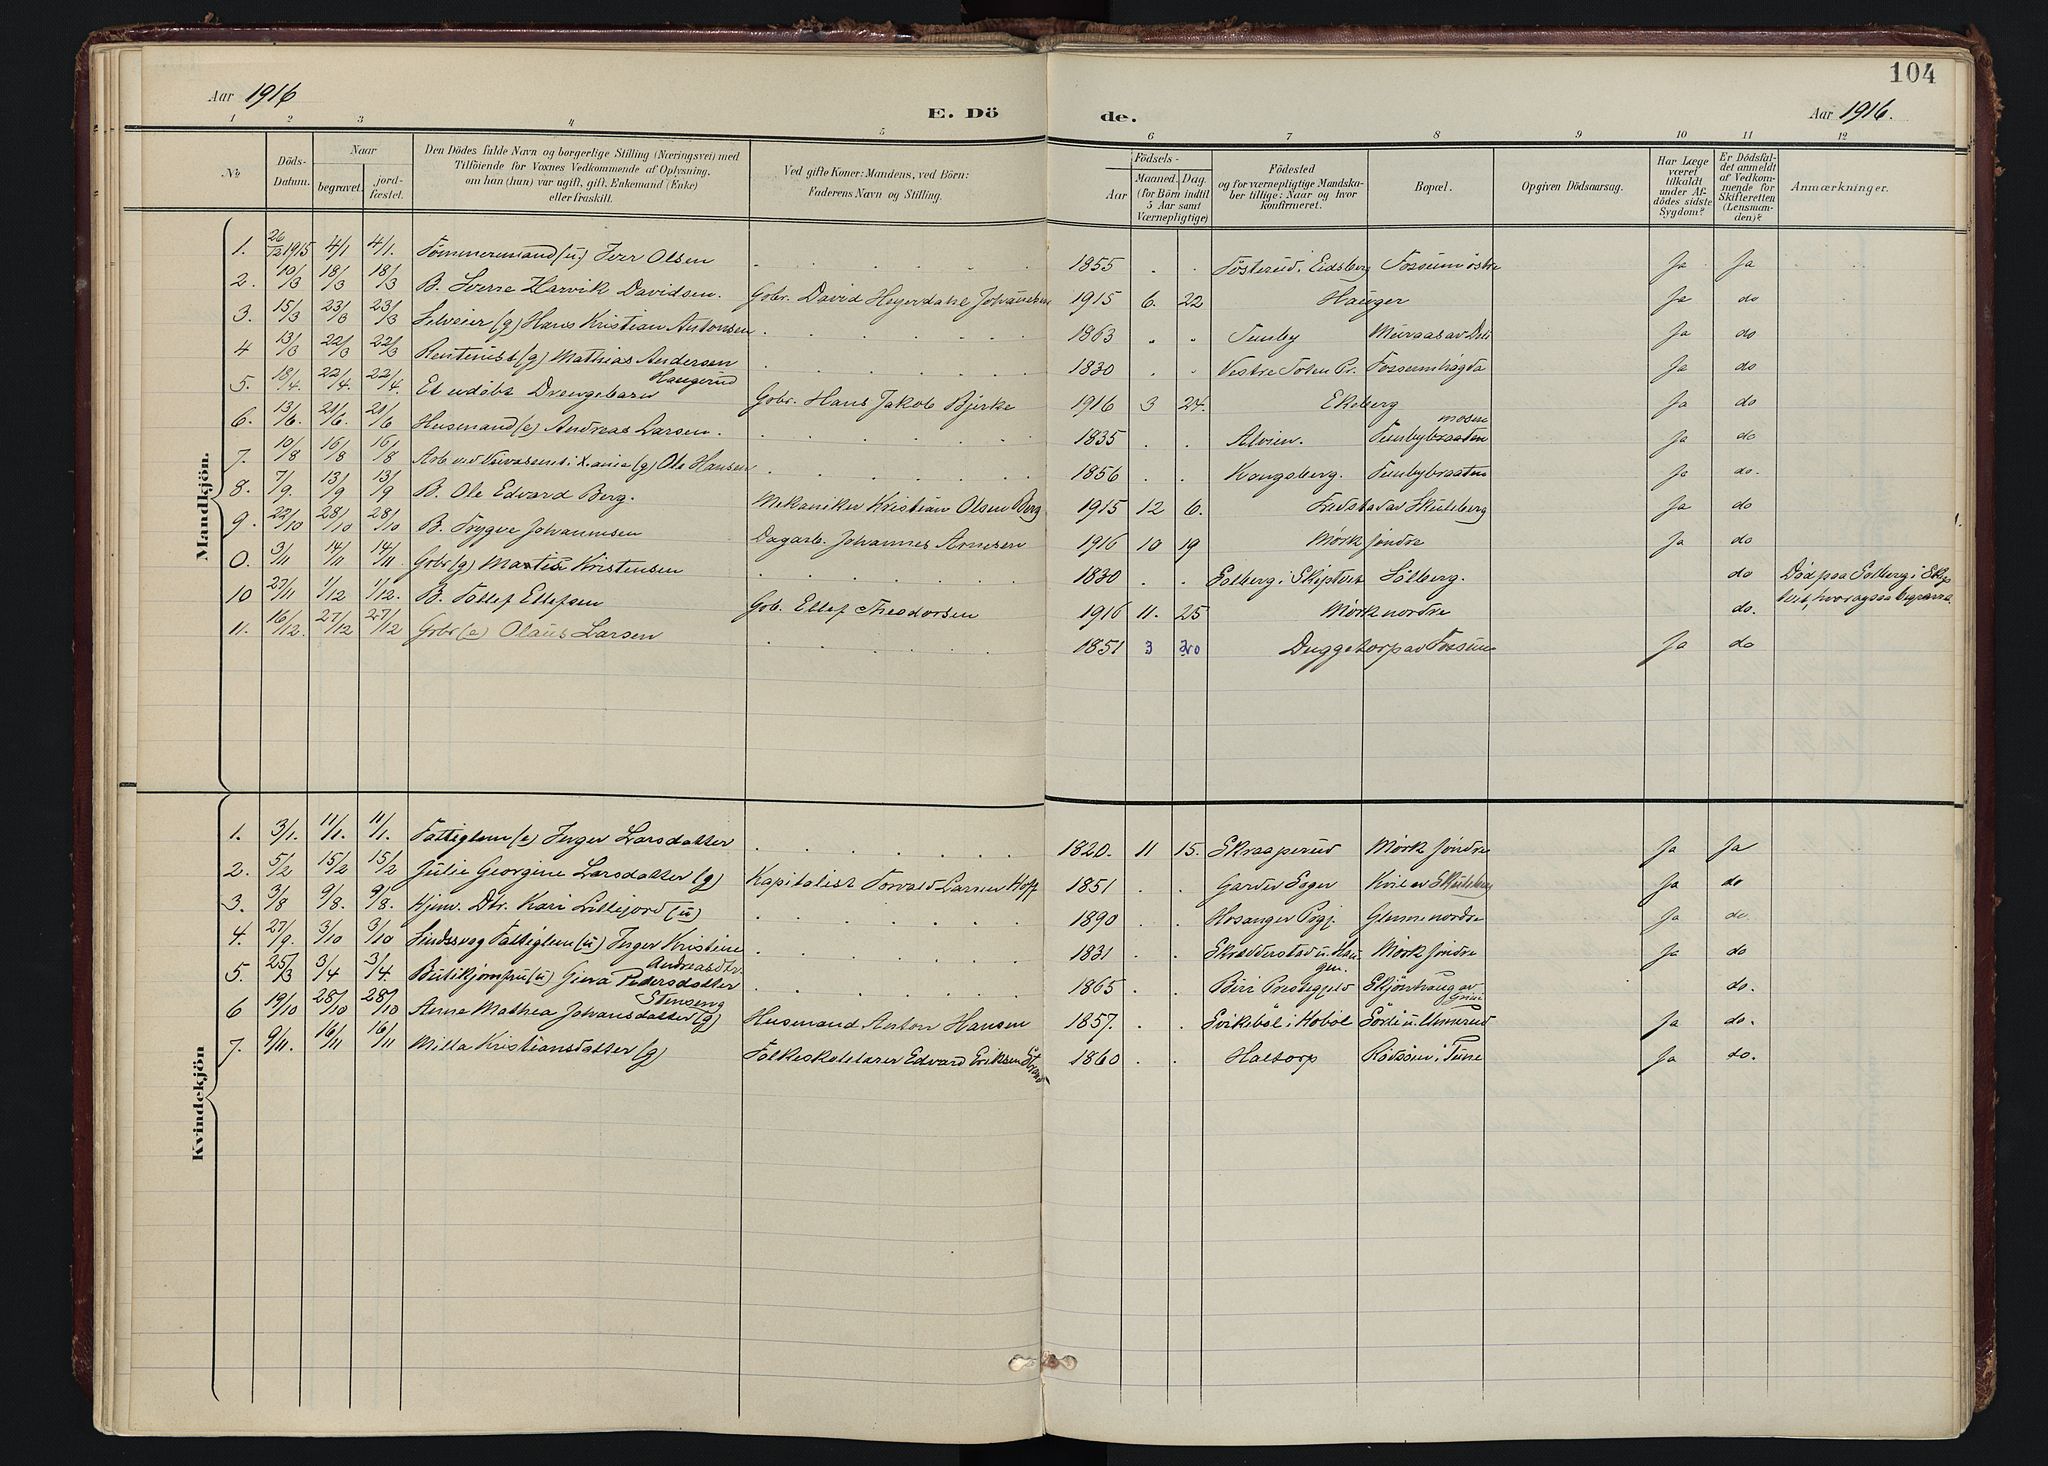 104
Aar 1916
E. Dö
de.
Aar 1916.
1 2 3 4 5 6 7 8 9 10 11 12
No.
Döds-
Datum.
Naar
begravet.
jord-
fæstet.
Den Dödes fulde Navn og borgerlige Stilling (Næringsvei) med
Tilföiende for Voxnes Vedkommende af Oplysning,
om han (hun) var ugift, gift, Enkemand (Enke)
eller fraskilt.
Ved gifte Koner: Mandens, ved Börn:
Faderens Navn og Stilling.
Födsels-
Aar
Maaned. Dag.
(for Börn indtil
5 Aar samt
Værnepligtige)
Födested
og for værnepligtige Mandska-
ber tillige: Naar og hvor
konfirmeret.
Bopæl.
Opgiven Dödsaarsag.
Har Læge
været
tilkaldt
under Af-
dödes sidste
Sygdom?
Er Dödsfal-
det anmeldt
af Vedkom-
mende for
Skifteretten
(Lensman-
den)?
Anmærkninger.
Mandkjön.
1. 26/12 1915 4/1 4/1. Tömmermand (u) Iver Olsen 1855 Fösterud i Eidsberg Fossum östre Ja Ja
2. 10/3 18/3 18/3 B. Sverre Harvik Davidsen. Gbr. David Heyerdahl Johansen 1915 6. 22 Hauger Ja do
3. 15/3 23/3 23/3 Selveier (g) Hans Kristian Antonsen 1863 Tenby av Ja do
4 13/3 22/3 22/3 (g) Mathias Andersen Haugerud 1830 Vestre Toten Pr. Fossumhögda Ja do
5. 18/4. 22/4. 22/4. Et udöbt Drengebarn Gbr. Hans Jakob Bjerke 1916 3 24. Ekeberg Ja do
6. 13/6. 21/6. 21/6 Husmand (e) Andreas Larsen. 1835 Tenbybraaten mosen Ja do
7. 10/8 16/8 16/8 Arb. ved i X.ania (g) Ole Hansen 1856 Kongsberg. Tenbybraaten Ja do.
8. 7/9. 13/9 13/9 B. Ole Edvard Berg. Mekaniker Kristian Olsen Berg 1915 12 6. av Skuleberg Ja do
9. 22/10 28/10 28/10 B. Trygve Johannesen Dagarb. Johannes Arnesen 1916 10 19 Mørk söndre Ja do
0. 3/11 14/11 14/11. Gbr (g) Martin Kristensen 1830 Solberg i Skiptvet Sölberg. do Död paa Solberg i Skip
tvet, hvor ogsaa begravet.
10 27/11 1/12 1/12. B. Tollef Ellefsen Gb. Ellef Theodorsen 1916 11. 25 Mørk nordre do.
11. 16/12. 27/12 27/12 Gbr (e) Olaus Larsen 1851 3 20 Duggetorp av Fossum Ja do
Kvindekjön
1. 3/1. 11/1. 11/1. Fattiglem (e) Inger Larsdatter 1820. 11 15. Skraaperud Mørk söndre Ja Ja
2. 5/2 15/2 15/2 Julie Georgine Larsdatter (g) Kapitalist Torvald Larsen Hoff 1851 Garder Soger Kvil av Skuleberg Ja do
3. 3/8 9/8. 9/8. Hjmv. Dtr. Kari Litlejord (u) 1890 Hosanger Pgj. Glenne nordre Ja do
4. 27/9. 3/10 3/10 Sindssvag Fattiglem (u) Inger Kristine Andreasdtr. 1831 Skrædderstad u. Hau
gen. Mørk söndre Ja do
5. 25/3 3/4 3/4. Butikjomfru (u) Gina Pedersdatter Stenseng 1865 Biri Prestegjeld Skjönhaug av Grini do.
6 19/10 28/10 28/10 Anne Mathea Johansdatter (g) Husmand Anton Hansen 1857. Svikeböl i Hoböl Sorti u. Unnerud Ja do.
7. 9/11. 16/11 16/11 Milla Kristiansdatter (g) Folkeskolelærer Edvard Eriksen 1860 Haltorp Rödsöen i Tune Ja do.